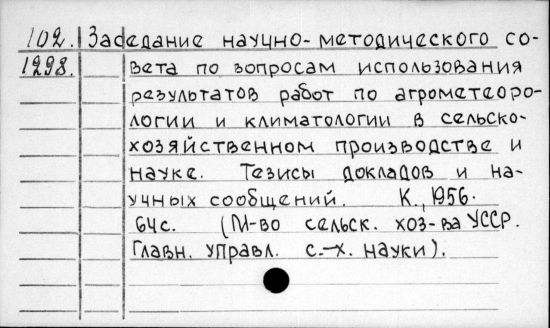 102. Заседание научно-методического со-
1298. вета по вопросам использования
результатов работ по агрометеоро-
логии и климатологии в сельско-
хозяйственном производстве и
науке. Тезисы докладов и на-
учных сообщений. К., 1956.
64с. (М-во сельск. хоз-ва УССР.
Главн. управл. с.-х. науки).